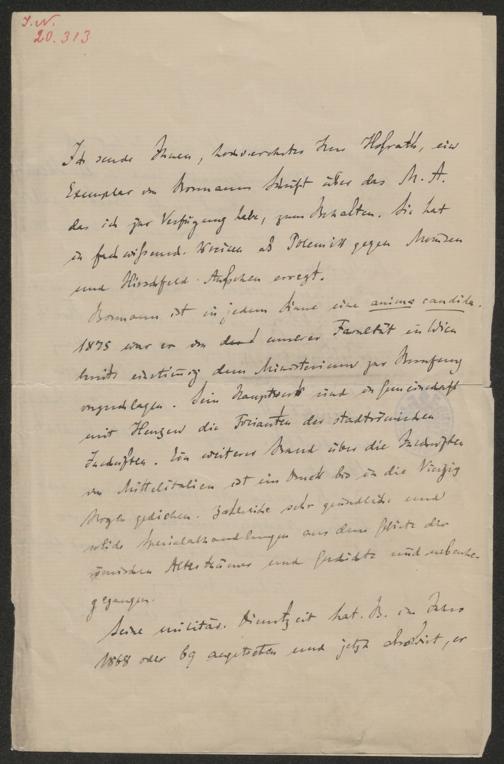 I. N.
20.313
Ich sende Ihnen, hochverehrter Herr Hofrath, ein
Exemplar von Bormanns Schrift über das M. A.
das ich zur Verfügung habe, zum Behalten. Sie hat
in fachwissensch. Kreisen als Polemik gegen Momsen
und Hirschfeld Aufsehen erregt.
Bormann ist in jedem Sinne eine anima candida.
1875 war er von unserer Facultät in Wien
bereits einstimmig dem Ministerium zur Berufung
vorgeschlagen. Sein Hauptwerk sind in Gemeinschaft
mit Henzen die der stadtrömischen
Inschriften. Ein weiterer Band über die Inschriften
von Mittelitalien ist im Druck bis in die Vierzig
Bogen gediehen. Zahlreiche sehr gründliche und
solide Specialabhandlungen aus dem Gebiete der
römischen Alterthümer und Geschichte sind nebenhe-
gegangen.
Seine militär. Dienstzeit hat B. im Jahre
1868 oder 69 angetreten und jetzt absolvirt, er